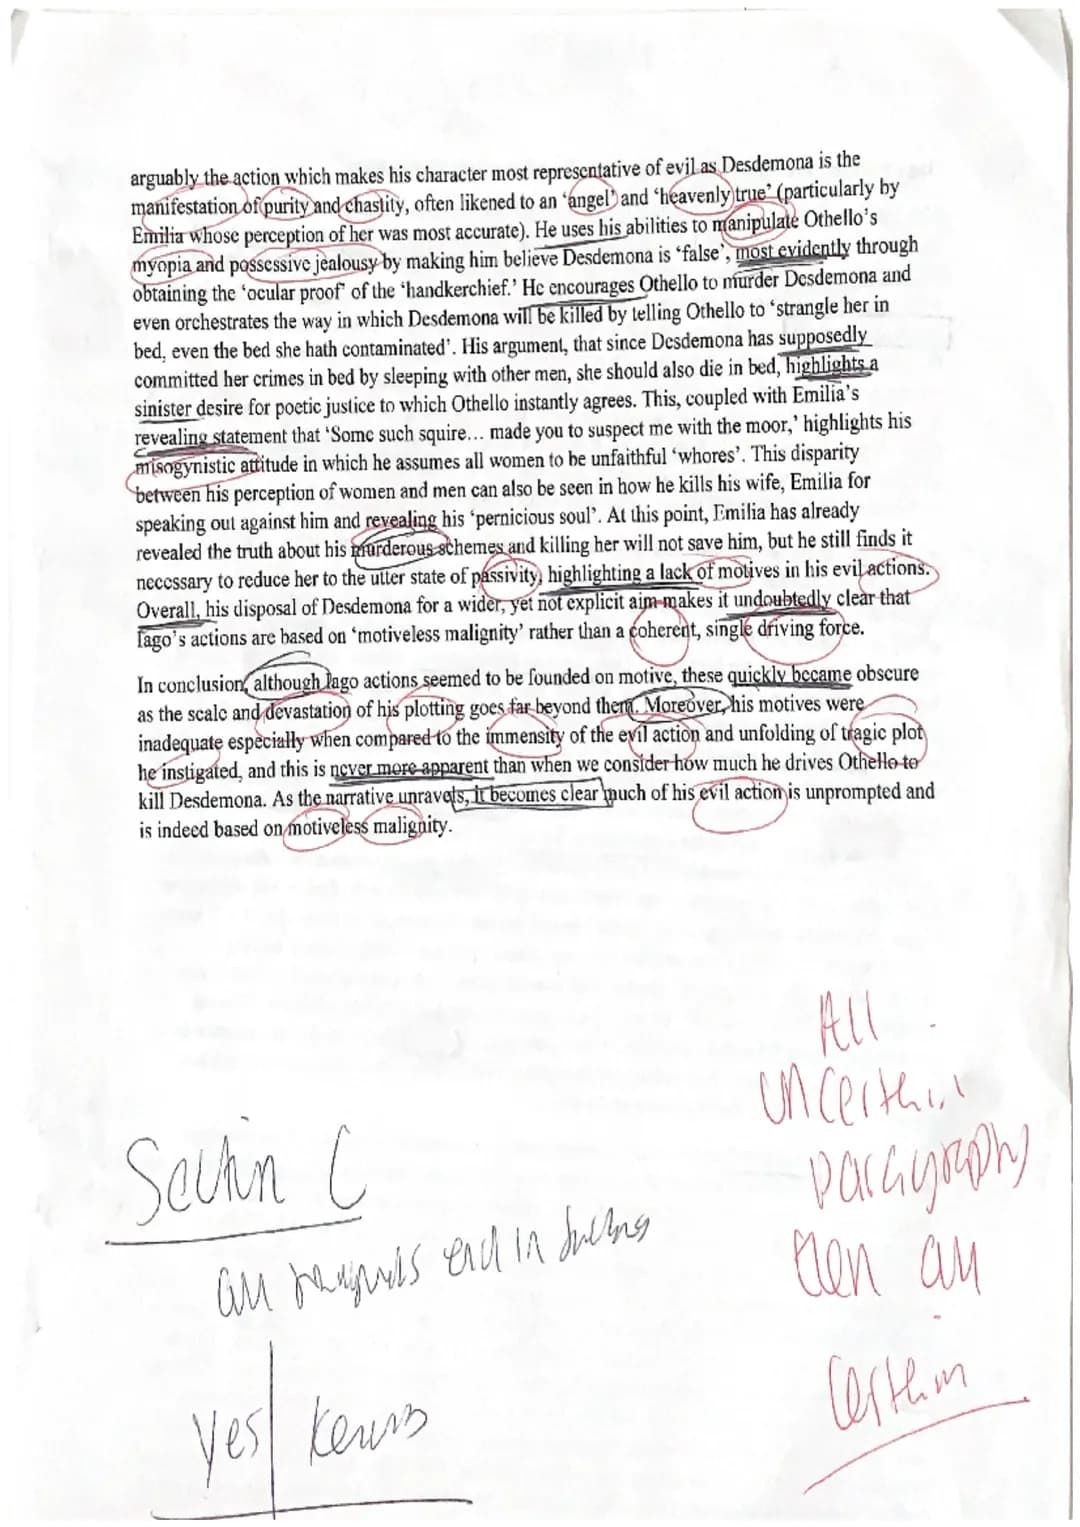 arguably the action which makes his character most representative of evil as Desdemona is the
manifestation of purity and chastity, often likened to an 'angel' and 'heavenly true' (particularly by
Emilia whose perception of her was most accurate). He uses his abilities to manipulate Othello's
myopia and possessive jealousy by making him believe Desdemona is 'false', most evidently through
obtaining the 'ocular proof' of the 'handkerchief.' He encourages Othello to murder Desdemona and
even orchestrates the way in which Desdemona will be killed by telling Othello to 'strangle her in
bed, even the bed she hath contaminated'. His argument, that since Desdemona has supposedly
committed her crimes in bed by sleeping with other men, she should also die in bed, highlights a
sinister desire for poetic justice to which Othello instantly agrees. This, coupled with Emilia's
revealing statement that 'Some such squire... made you to suspect me with the moor,' highlights his
misogynistic attitude in which he assumes all women to be unfaithful 'whores'. This disparity
between his perception of women and men can also be seen in how he kills his wife, Emilia for
speaking out against him and revealing his 'pernicious soul'. At this point, Emilia has already
revealed the truth about his murderous schemes and killing her will not save him, but he still finds it
necessary to reduce her to the utter state of passivity, highlighting a lack of motives in his evil actions.
Overall, his disposal of Desdemona for a wider, yet not explicit aim makes it undoubtedly clear that
Iago's actions are based on 'motiveless malignity' rather than a coherent, single driving force.
In conclusion, although Iago actions seemed to be founded on motive, these quickly became obscure
as the scale and devastation of his plotting goes far beyond them. Moreover, his motives were
inadequate especially when compared to the immensity of the evil action and unfolding of tragic plot
he instigated, and this is never more apparent than when we consider how much he drives Othello to
kill Desdemona. As the narrative unravels, it becomes clear much of his evil action is unprompted and
is indeed based on motiveless malignity.
All
uncerthin
paragraphs
then all
certhin
Section C
all end in
yes